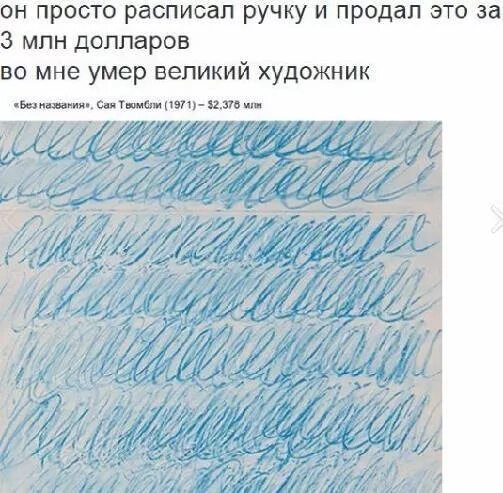 он просто расписал ручку и продал это за
3 млн долларов
во мне умер великий художник
«Без названия», Сая Твомбли (1971) – $2,378 млн